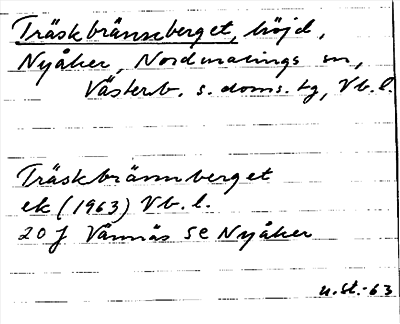 Träskbrännberget, höjd,
Nyåker, Nordmalings sn,
Västerb. s. doms. tg, Vb. l.
Träskbrännberget
ek (1963) Vb. l.
20 J Vännäs SE Nyåker
u. St. -63